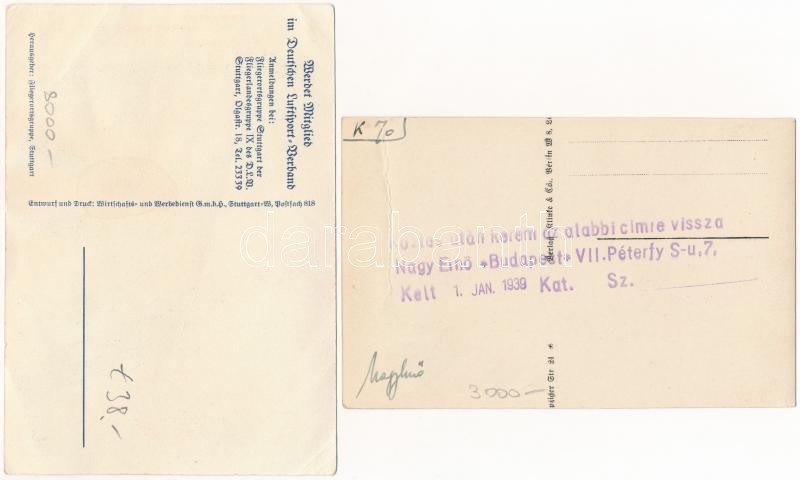 Werdet Mitglied
im Deutschen Luftsport-Verband
Anmeldungen bei:
Fliegerortsgruppe Stuttgart der
Fliegerlandesgruppe IX des D.L.V.
Stuttgart, Olgastr. 18, Tel. 23339
Herausgeber: Fliegerortsgruppe, Stuttgart
8000.-
Entwurf und Druck: Wirtschafts- und Werbedienst G.m.b.H., Stuttgart-W, Postfach 818
€38,-
darabanth
K 70
Verlag Klinke & Co., Berlin W 8, Le
után kérem az alábbi címre vissza
Nagy Ernő «Budapest» VII. Péterfy S-u, 7,
Kelt 1. JAN. 1939 Kat. Sz.
Nagy Ernő
3000.-
pziger Str 24